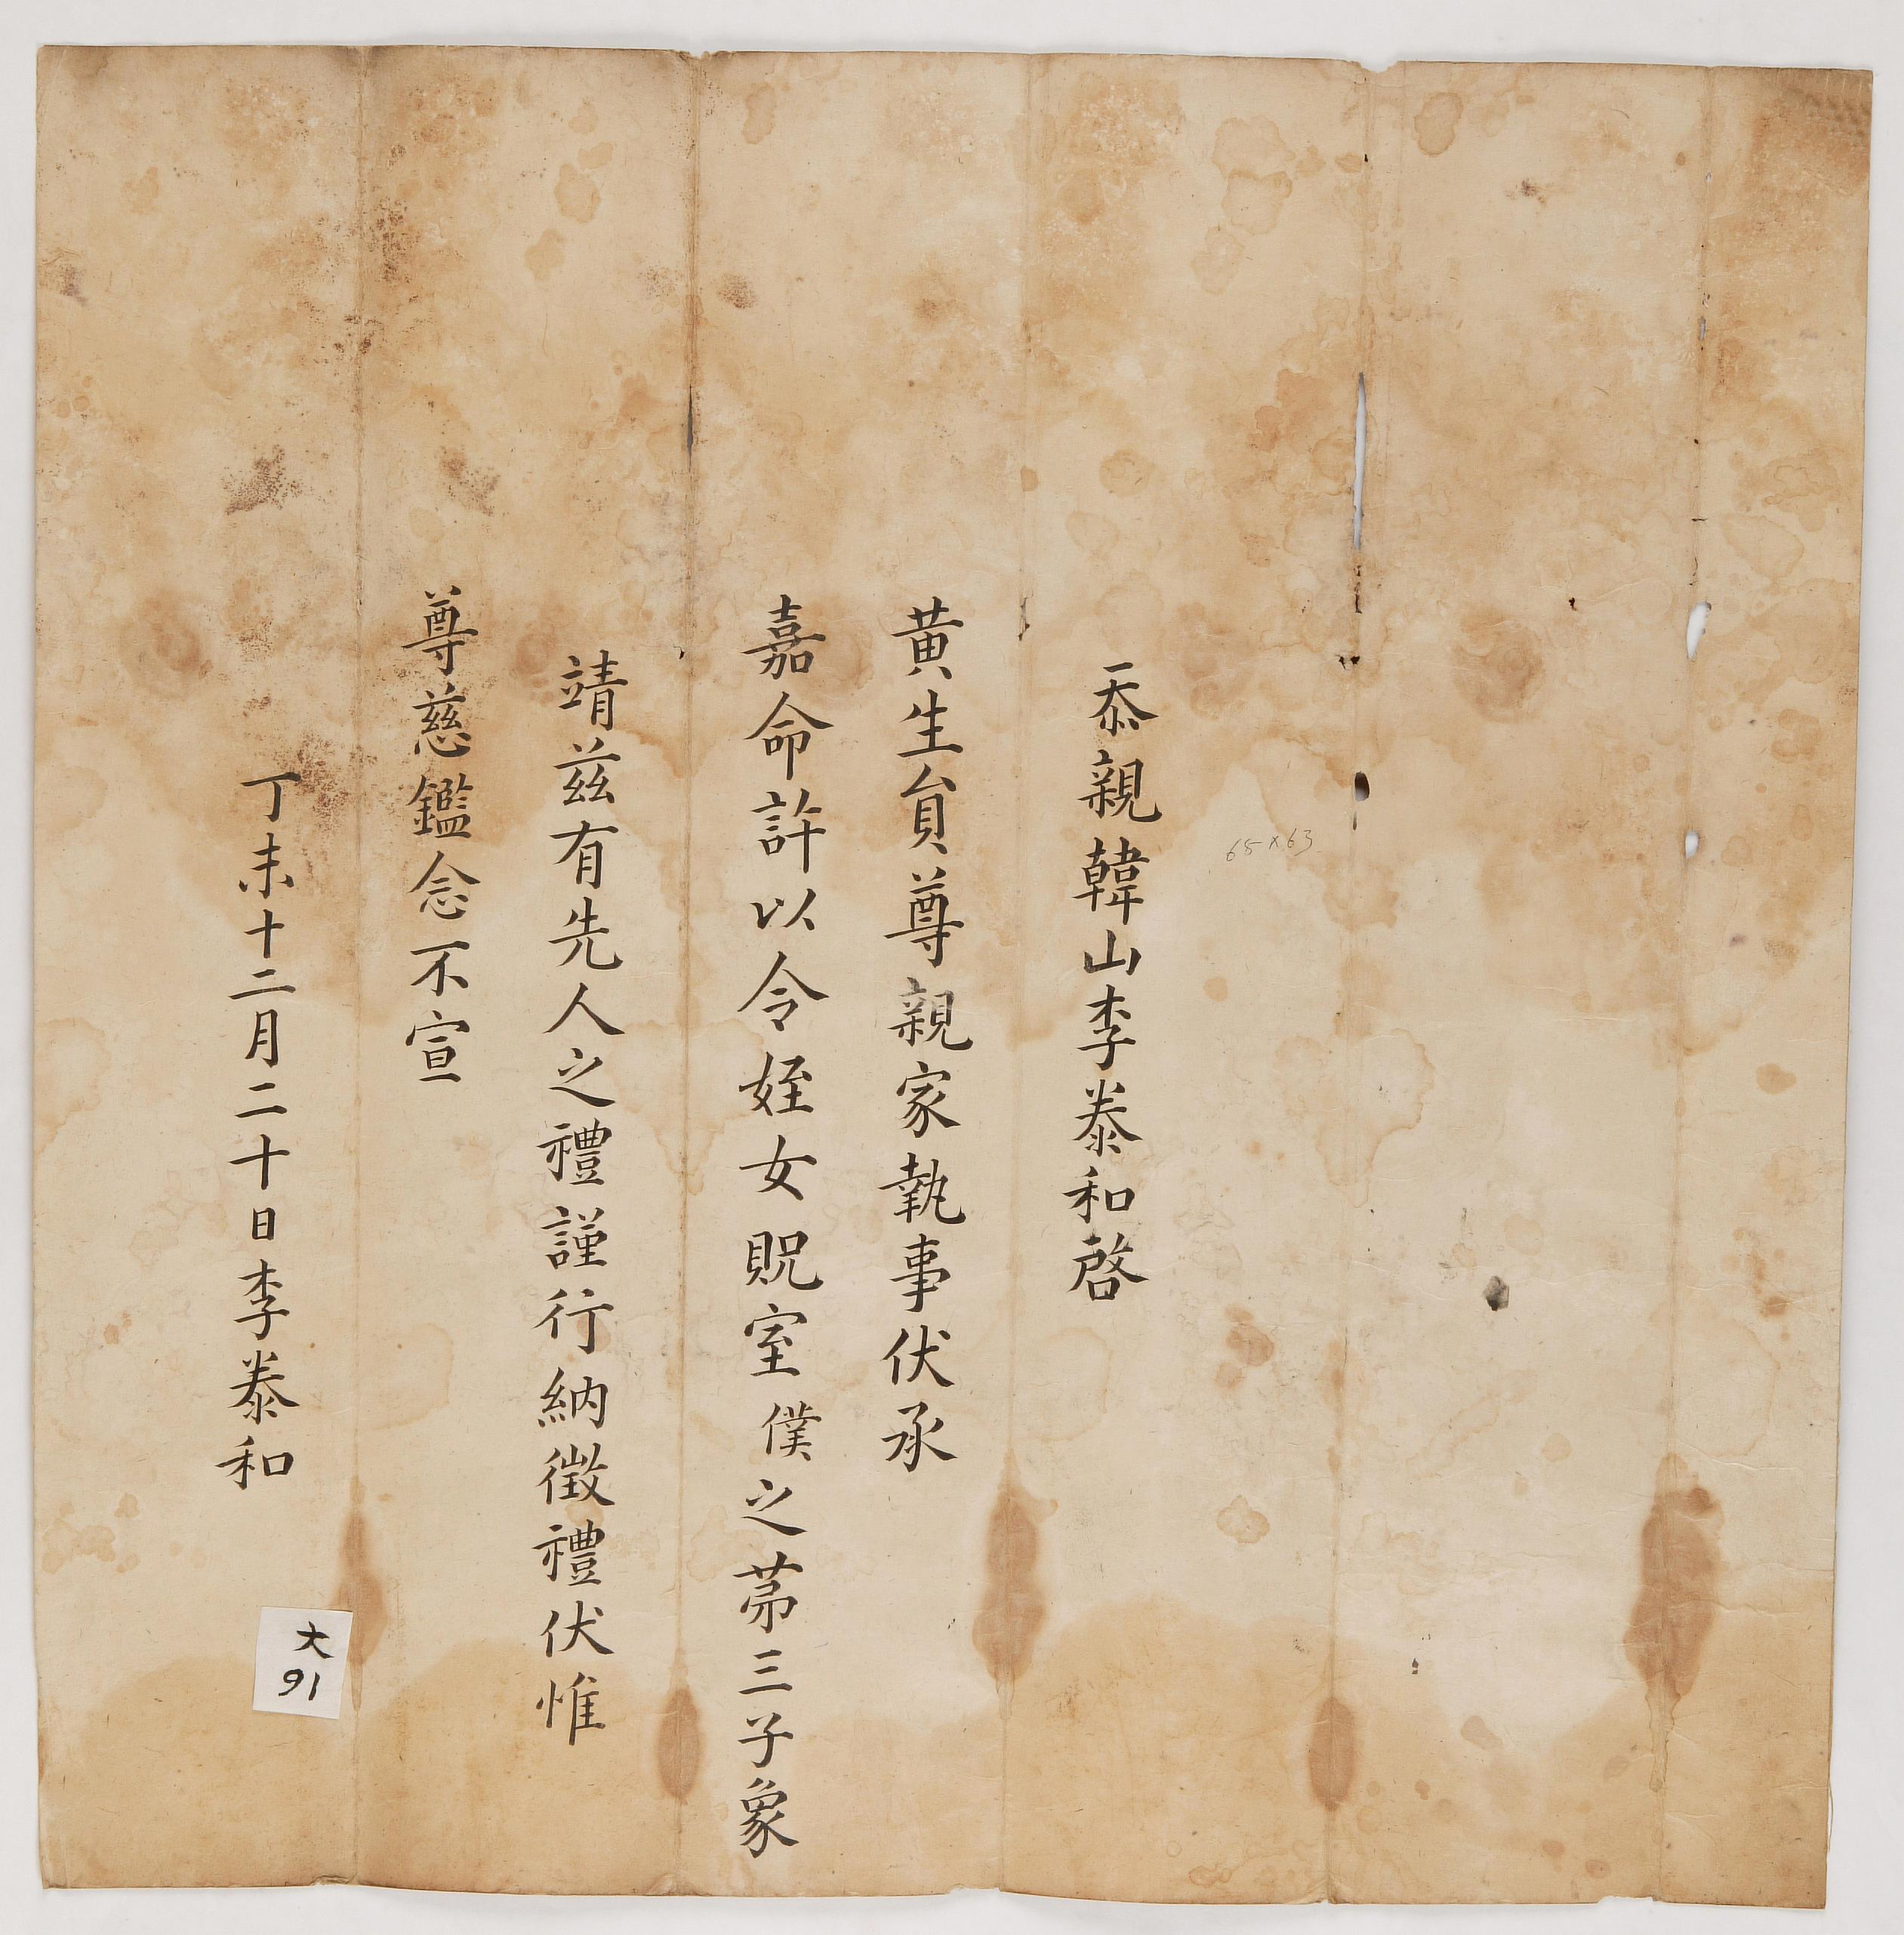 忝親韓山李泰和啓
黃生員尊親家執事伏承
嘉命許以令姪女貺室僕之苐三子象
靖茲有先人之禮謹行納徵禮伏惟
尊慈鑑念不宣
丁未十二月二十日李泰和
65×63
大
91